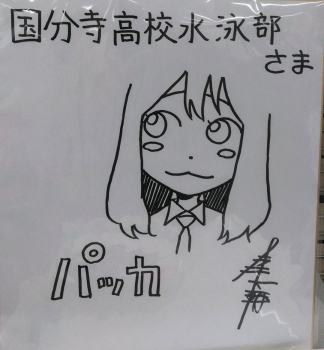 国分寺高校水泳部
さま
パッカ